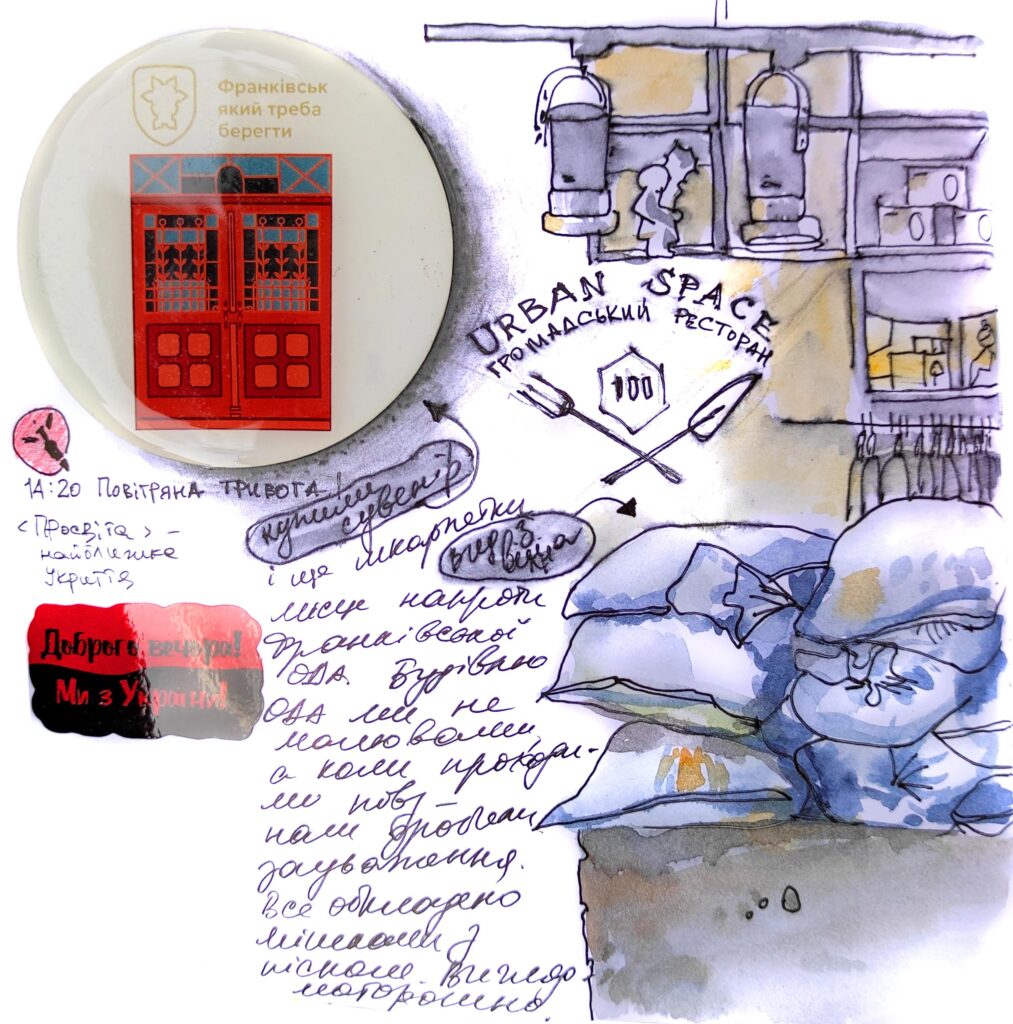 Франківськ
який треба
берегти
URBAN SPACE
ГРОМАДСЬКИЙ РЕСТОРАН
100
14:20 Повітряна тривога!
<Просвіта> –
найближче
укриття
Доброго вечора!
Ми з України!
купили
сувенір
і ще шкарпетки
вид з
вікна
місце навпроти
Франківської
ОДА. Будівлю
ОДА ми не
малювали,
а коли проходи-
ли повз –
нам зробили
зауваження.
Все обкладено
мішками з
піском. Виглядає
моторошно.